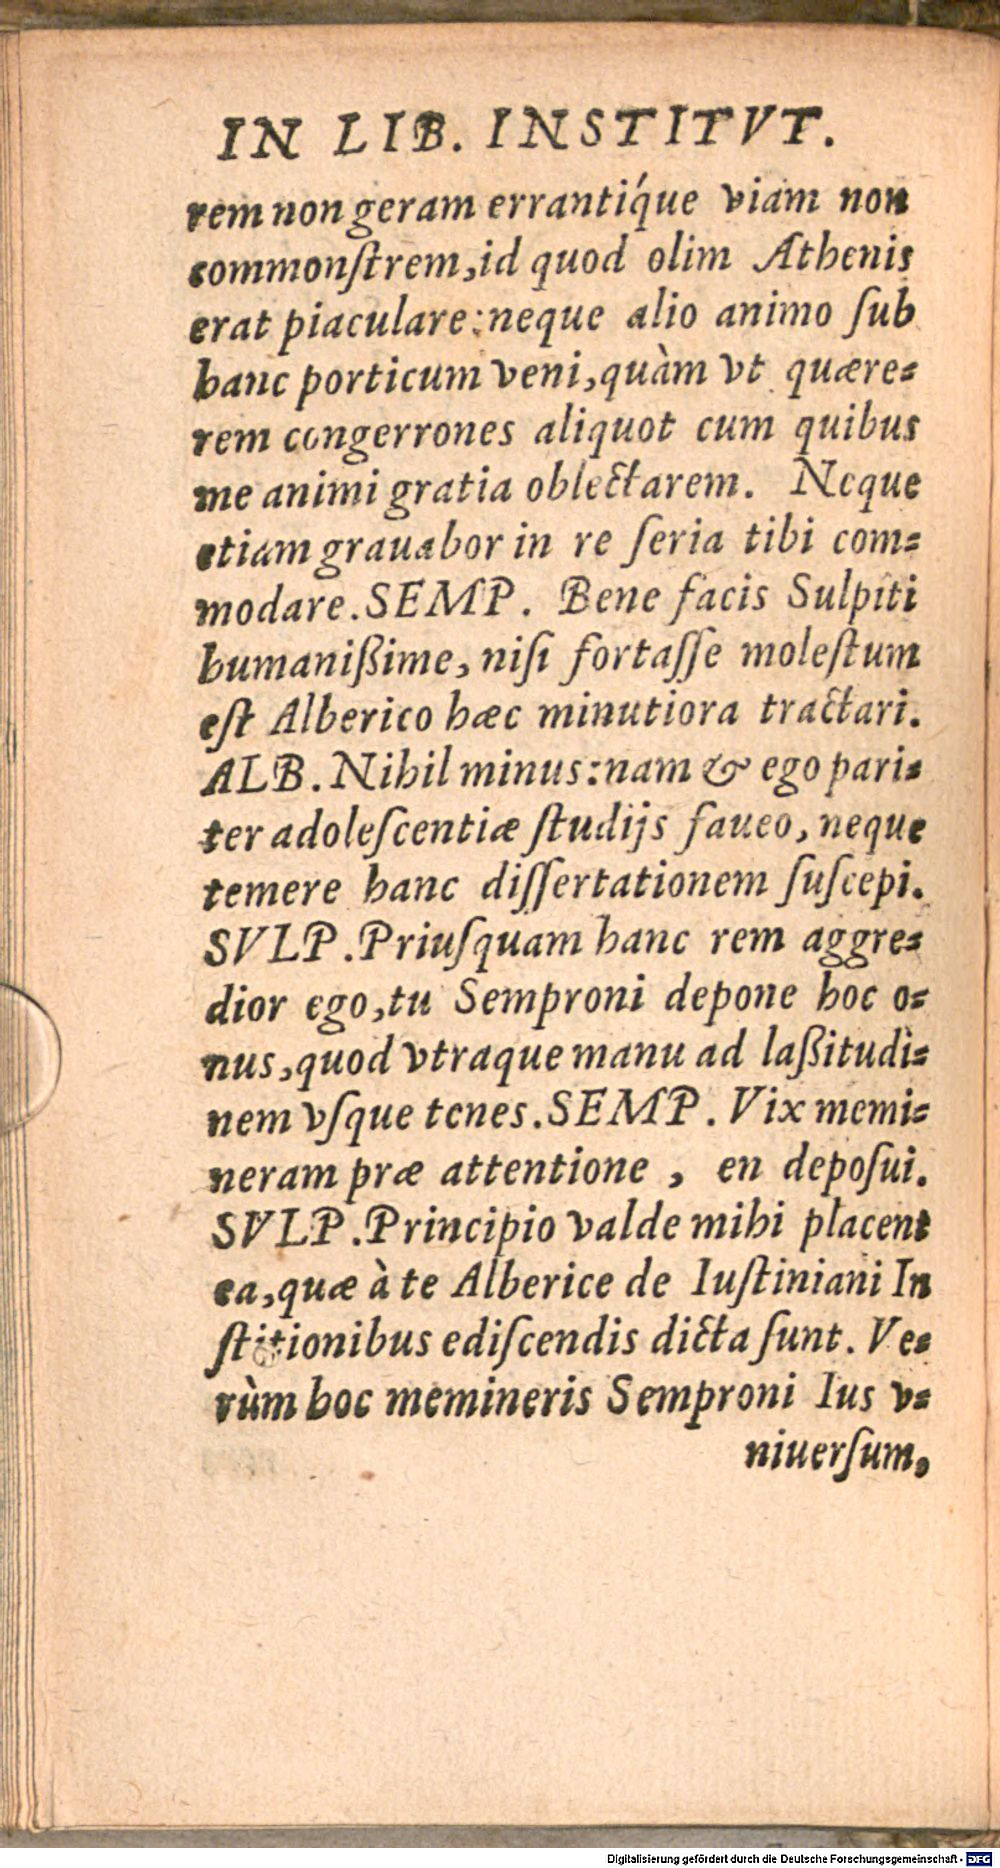 IN LIB. INSTITVT.
rem non geram errantíque viam non
commonſtrem, id quod olim Athenis
erat piaculare: neque alio animo ſub
hanc porticum veni, quàm vt quære-
rem congerrones aliquot cum quibus
me animi gratia oblectarem. Neque
etiam grauabor in re ſeria tibi com-
modare. SEMP. Bene facis Sulpiti
humanißime, niſi fortaſſe moleſtum
eſt Alberico hæc minutiora tractari.
ALB. Nihil minus: nam & ego pari-
ter adoleſcentiæ ſtudijs faueo, neque
temere hanc diſſertationem ſuſcepi.
SVLP. Priuſquam hanc rem aggre-
dior ego, tu Semproni depone hoc o-
nus, quod vtraque manu ad laßitudi-
nem vſque tenes. SEMP. Vix memi-
neram præ attentione, en depoſui.
SVLP. Principio valde mihi placent
ea, quæ à te Alberice de Iuſtiniani In
ſtitionibus ediſcendis dicta ſunt. Ve-
rùm hoc memineris Semproni Ius v-
niuerſum,
Digitalisierung gefördert durch die Deutsche Forschungsgemeinschaft - DFG